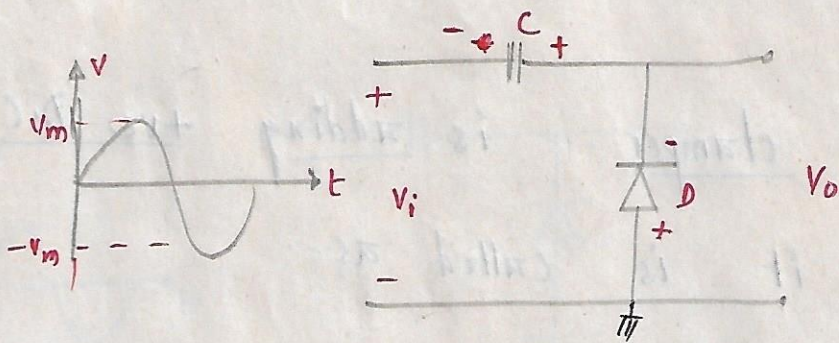 V
Vm
t
-Vm
- C +
+
Vi
-
- D
+
Vo